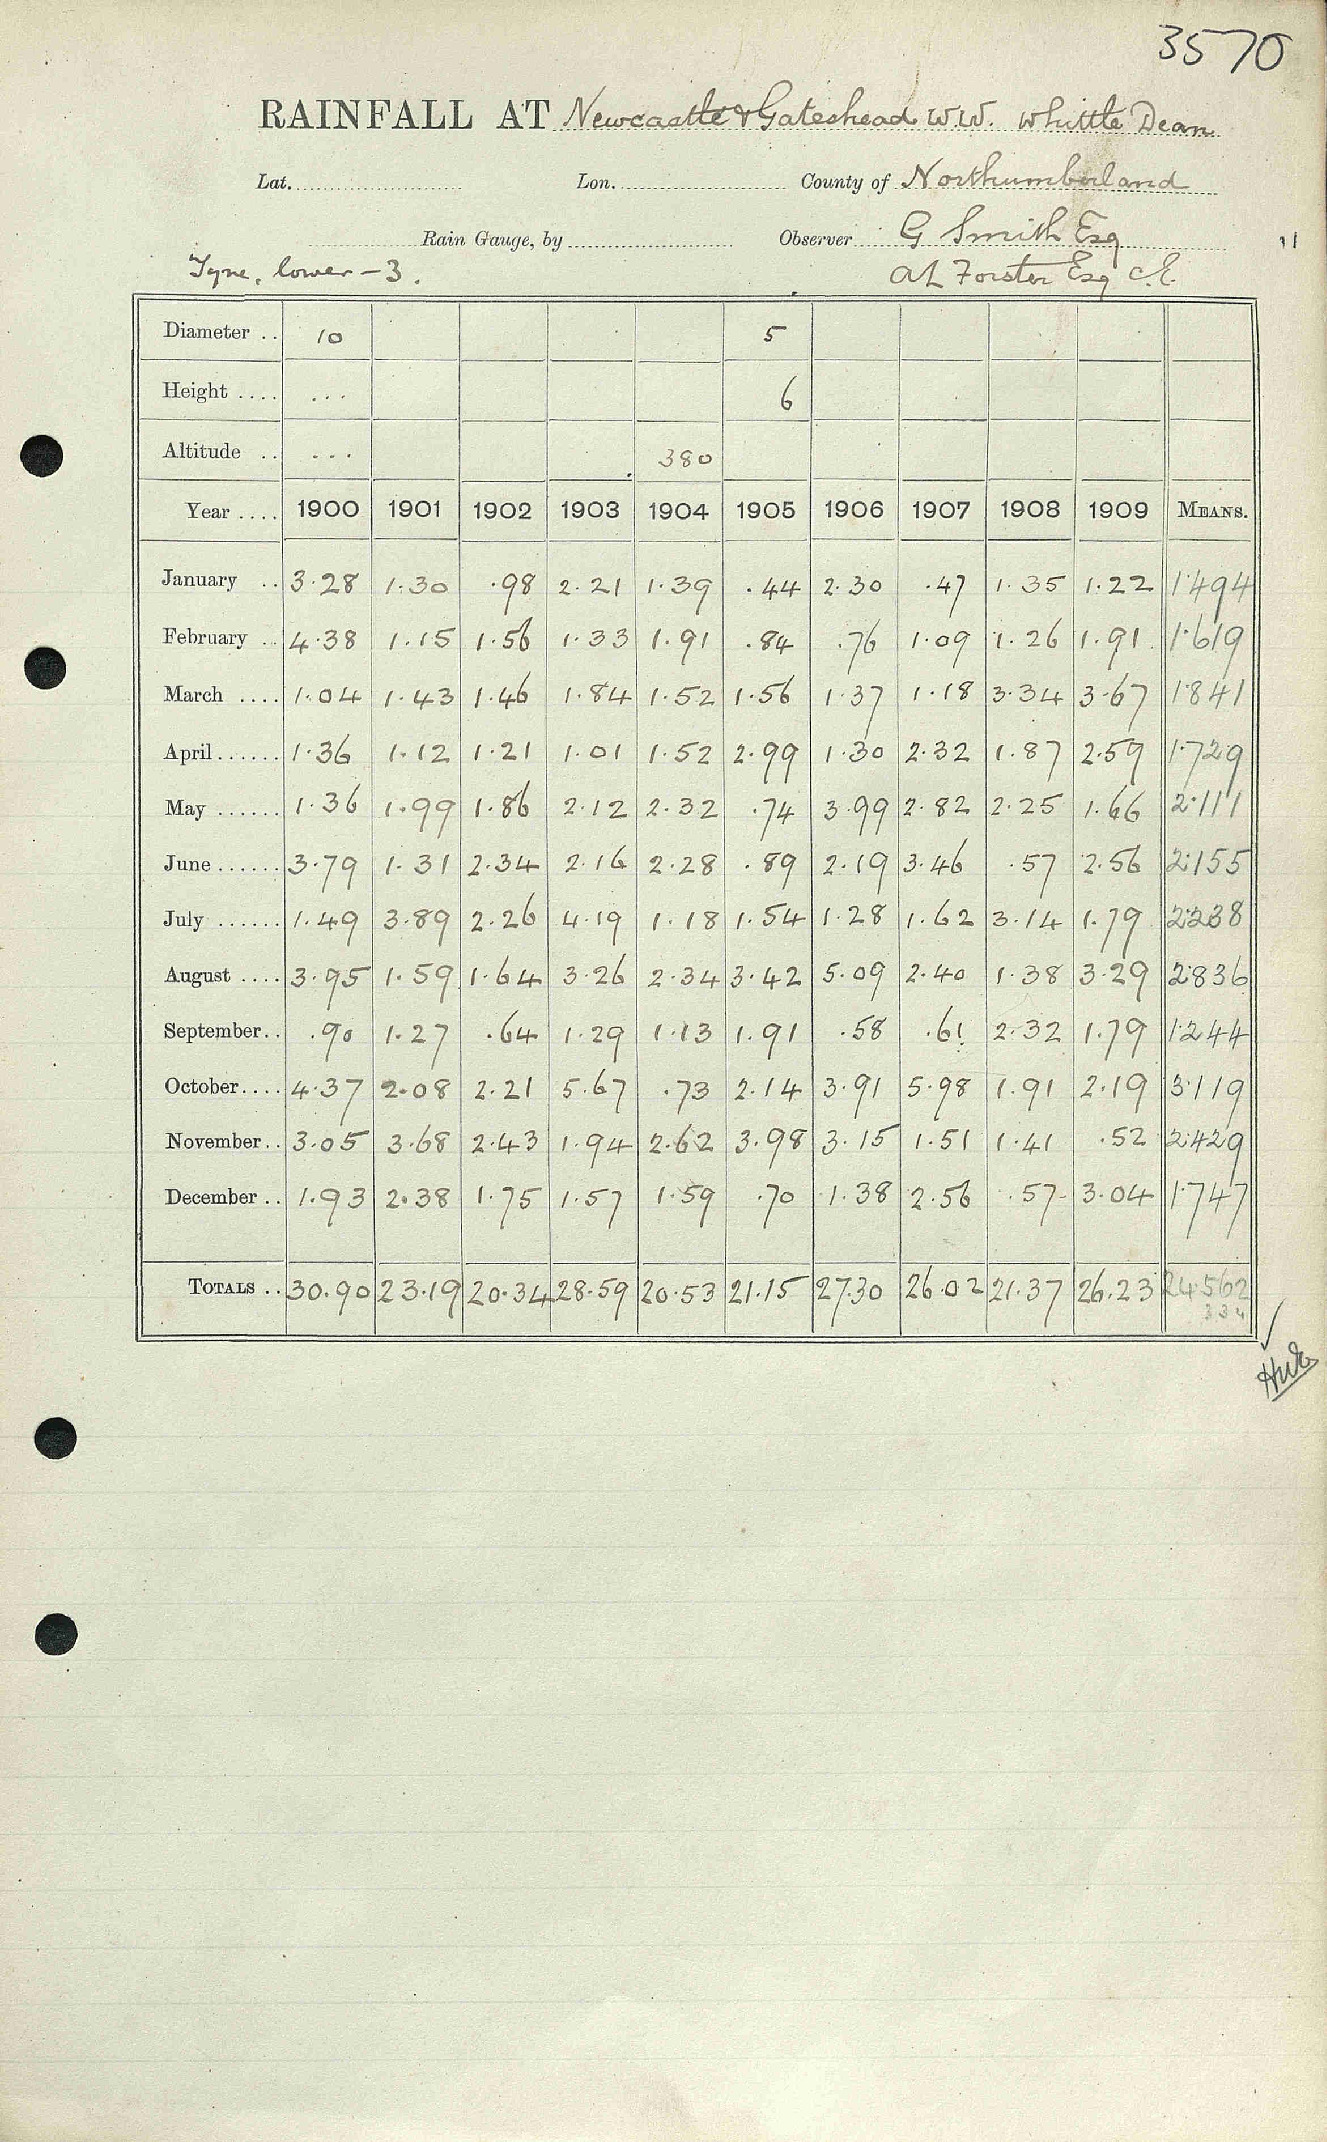 3570
RAINFALL AT Newcastle & Gateshead W.W. Whittle Dean
Lat. Lon. County of Northumberland
Rain Gauge, by Observer G Smith Esq
Tyne, lower - 3. A L Forster Esq C.E.
Diameter .. 10 5
Height .... ... 6
Altitude .. ... 380
Year .... 1900 1901 1902 1903 1904 1905 1906 1907 1908 1909 MEANS.
January .. 3.28 1.30 .98 2.21 1.39 .44 2.30 .47 1.35 1.22 1.494
February .. 4.38 1.15 1.56 1.33 1.91 .84 .76 1.09 1.26 1.91 1.619
March .... 1.04 1.43 1.46 1.84 1.52 1.56 1.37 1.18 3.34 3.67 1.841
April ...... 1.36 1.12 1.21 1.01 1.52 2.99 1.30 2.32 1.87 2.59 1.729
May ...... 1.36 1.99 1.86 2.12 2.32 .74 3.99 2.82 2.25 1.66 2.111
June ...... 3.79 1.31 2.34 2.16 2.28 .89 2.19 3.46 .57 2.56 2.155
July ...... 1.49 3.89 2.26 4.19 1.18 1.54 1.28 1.62 3.14 1.79 2.238
August .... 3.95 1.59 1.64 3.26 2.34 3.42 5.09 2.40 1.38 3.29 2.836
September .. .90 1.27 .64 1.29 1.13 1.91 .58 .61 2.32 1.79 1.244
October .... 4.37 2.08 2.21 5.67 .73 2.14 3.91 5.98 1.91 2.19 3.119
November .. 3.05 3.68 2.43 1.94 2.62 3.98 3.15 1.51 1.41 .52 2.429
December .. 1.93 2.38 1.75 1.57 1.59 .70 1.38 2.56 .57 3.04 1.747
TOTALS .. 30.90 23.19 20.34 28.59 20.53 21.15 27.30 26.02 21.37 26.23 24.562
334